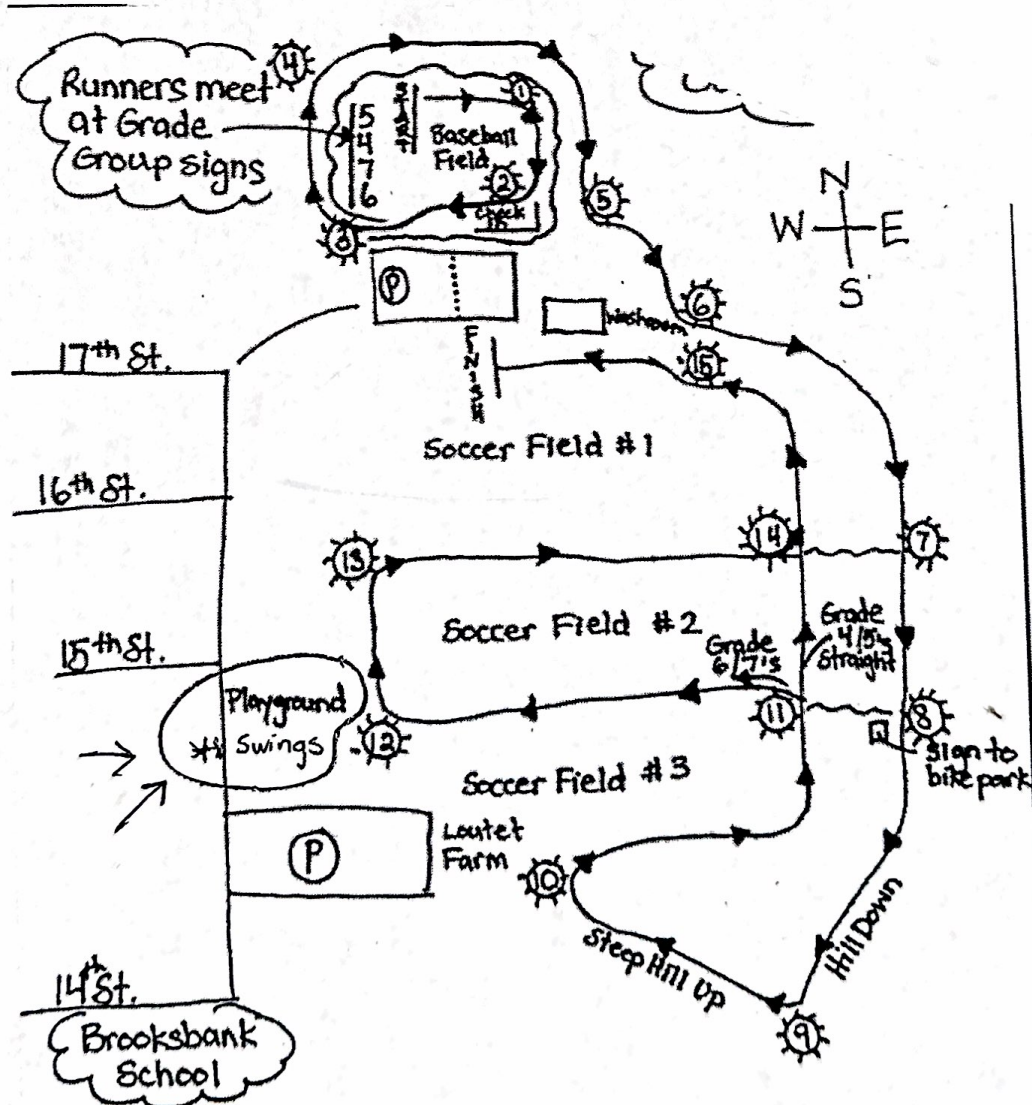 Runners meet
at Grade
Group signs
4
5
4
7
6
Start
1
Baseball
Field
2
Check
In
3
5
N
W
E
S
P
6
Washroom
FINISH
15
17th St.
Soccer Field #1
16th St.
13
14
7
Soccer Field #2
Grade
4/5's
Straight
Grade
6/7's
15th St.
Playground
Swings
12
11
8
Sign to
bike park
Soccer Field #3
P
Loutet
Farm
10
Hill Down
Steep Hill Up
9
14th St.
Brooksbank
School